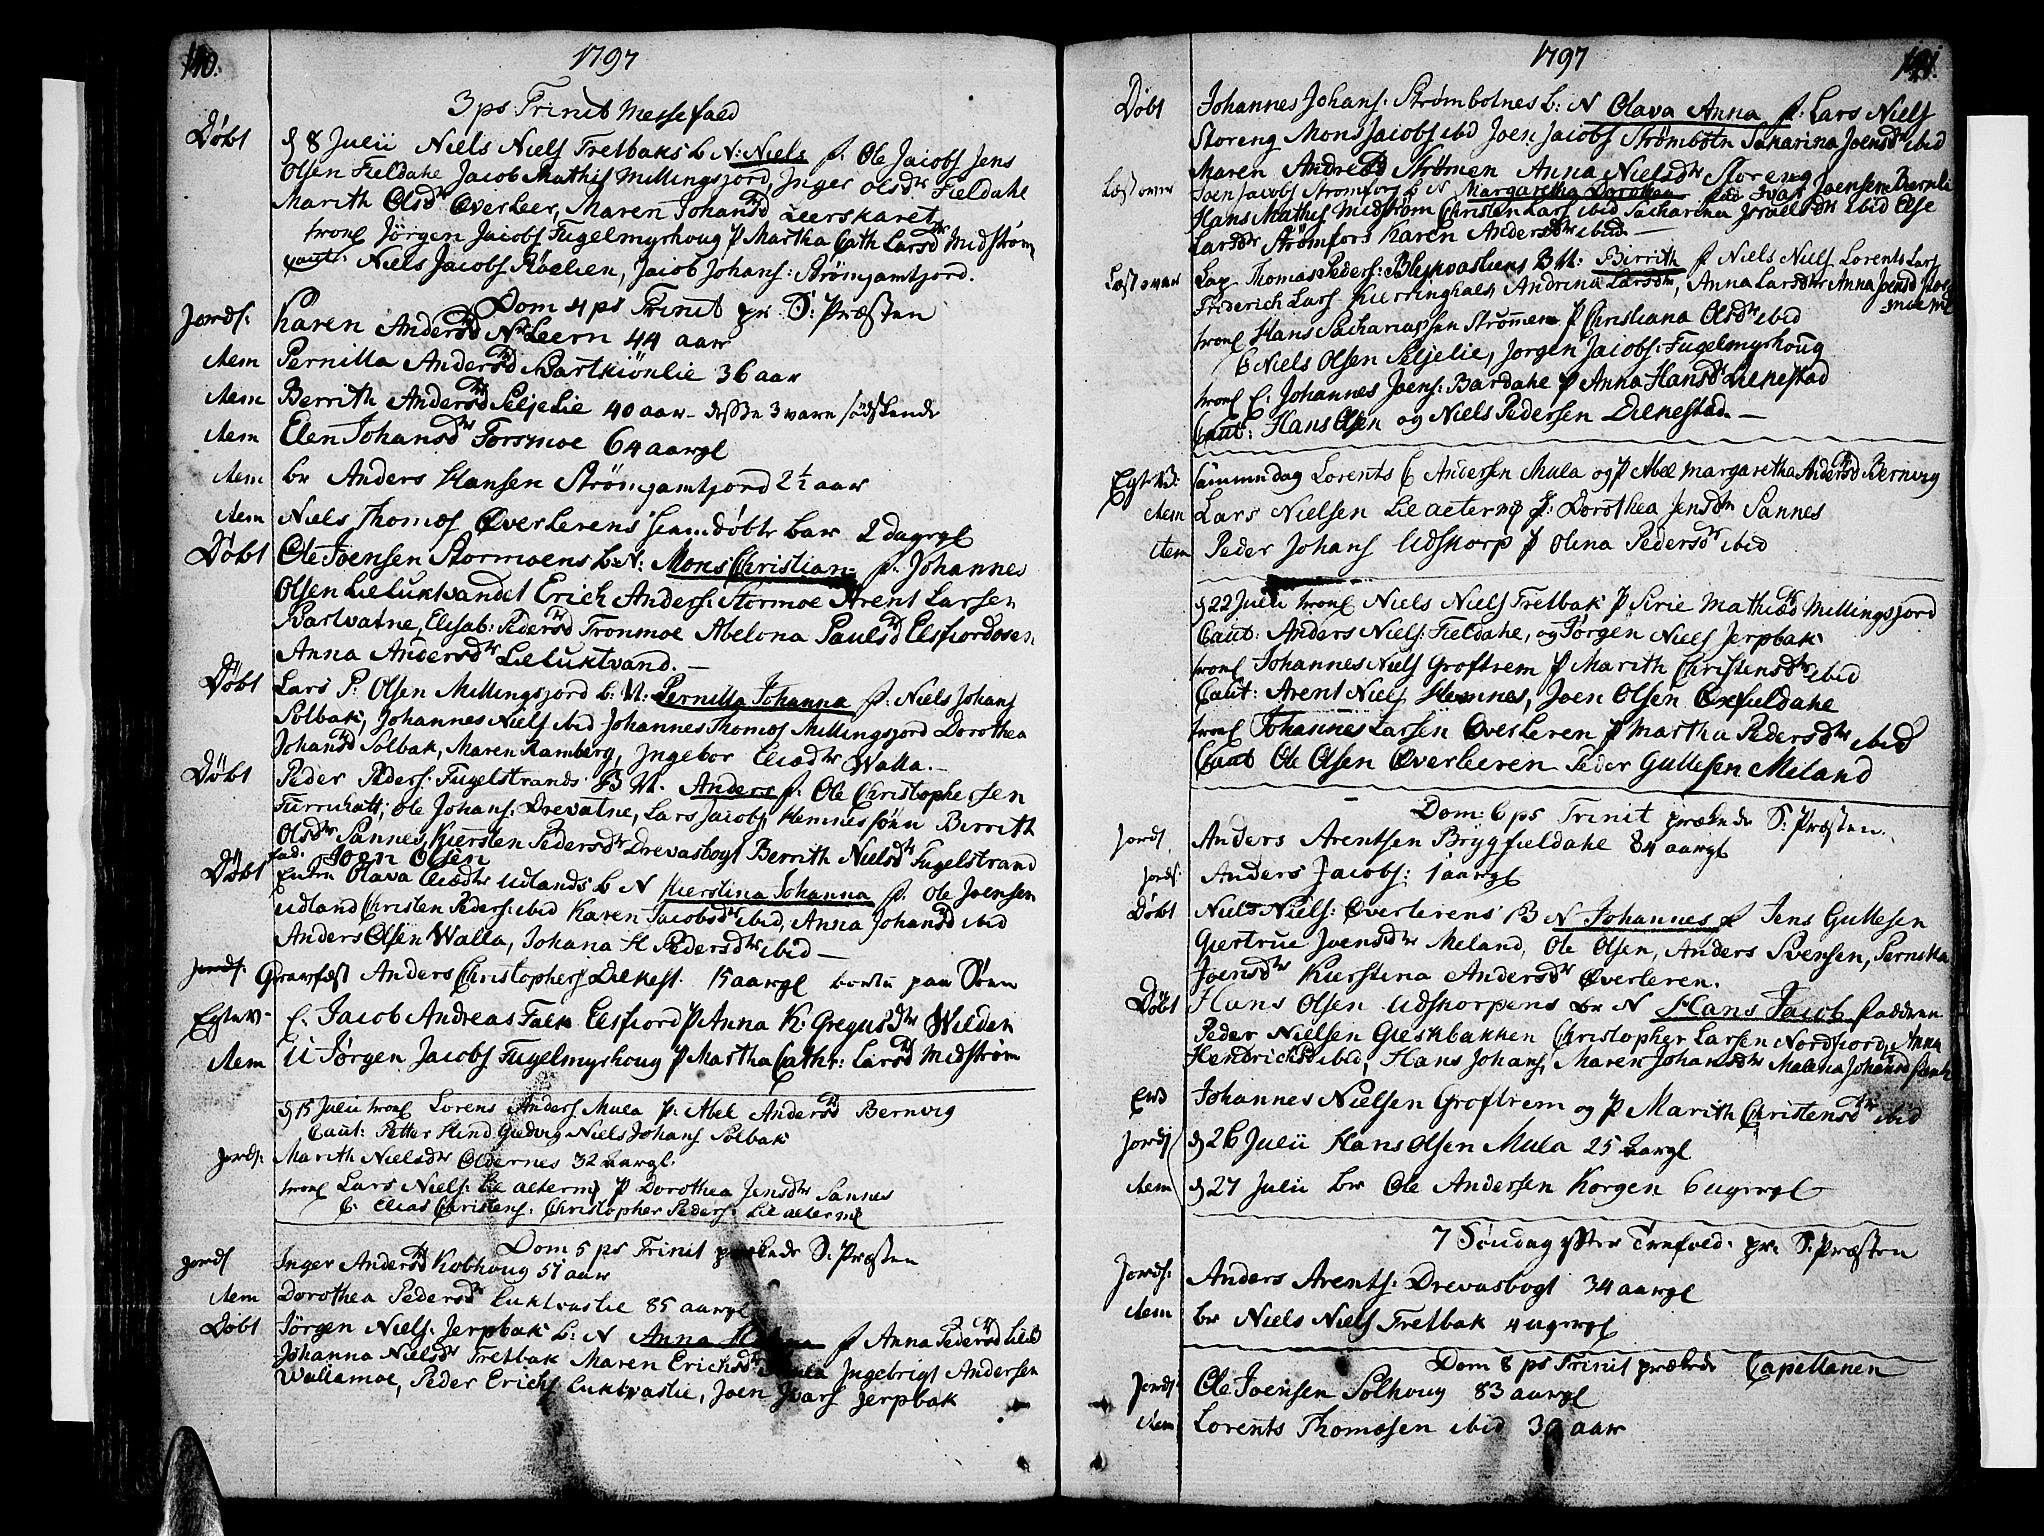 140.
1797
3 ps. Trinit Messefald
Døbt d 8 Julii Niels Niels Tretbaks b N: Niels f. Ole Jacobs Jens
Olsen Fieldahl Jacob Mathis Millingsjord Inger Olsdtr Fieldahl
Marith Olsdtr Øverleer, Maren Johansdtr Leerskaret
trol Jörgen Jacobs Fugelmyrhoug P Martha Cath Larsdtr Midström
Caut: Niels Jacobs Röelien, Jacob Johans: Strömjamtjord.
Dom 4 ps Trinit pr. S: Præsten
Jords: Karen Andersdtr N: Leern 44 aar
Item Pernilla Andersdtr Bartkiönlie 36 aar
Item Berrith Andersdtr Seljelie 40 aar - disse 3 vare södskende
Item Elen Johansdtr Forsmoe 64 aargl
Item br Anders Hansen Strömjamtjord 2½ aar
Item Niels Thomas Øverlerens hiemdöbte bar 2 dagrgl
Døbt Ole Joensen Stormoens b: N: Mons Christian f. Johannes
Olsen Lieluktvandet Erich Anders: Stormoe Arent Larsen
Bartvatne, Elisab: Pedersdtr Tronmoe Abelona Paulsdtr Elsfiordosen
Anna Andersdtr Lieluktvand. —
Døbt Lars P: Olsen Millingsjord b: N: Pernilla Johanna f: Niels Johans
Solbak, Johannes Niels ibid Johannes Thomas Millingsjord Dorothea
Johansdtr Solbak, Maren Ramberg, Ingebor Eliædtr Walla. —
Døbt Peder Peders: Fugelstrands B N. Anders f. Ole Christophersen
Furruhatt, Ole Johans: Drevatne, Lars Jacobs Hemnes sönn Berrith
Olsdtr Sannes, Kiersten Pedersdtr Drevasbogt Berrith Nielsdtr Fugelstrand
fad. Joen Olsen
Døbt Enken Olava Eliædtr Udlands b N Kierstina Johanna f. Ole Joensen
Udland Christen Peders: ibid Karen Jacobsdtr ibid, Anna Johansdtr ibid
Anders Olsen Walla, Johana H Pedersdtr ibid —
Jords: Gravfæst Anders Christophers Lienest. 15 aargl bortu paa Söen
Egtev- C. Jacob Andreas Falk Elsfiord P Anna K: Gregusdtr Wilden
Item U Jörgen Jacobs Fugelmyrhoug P Martha Cathr: Larsdtr Midström
d 15 Julii trol Lorens Anders Mula P. Abel Andersdtr Bernvig
Caut: Petter Hind Gudvig Niels Johans Solbak
Jords: Marith Nielsdtr Oldernes 32 aargl.
trol Lars Niels: Lie P Dorothea Jensdtr Sannes
C. Elias Christens. Christopher Peders: Lie
Dom 5 ps Trinit prækede S: Præsten
Jords Inger Andersdtr Kobhoug 51 aar
Item Dorothea Pedersdtr Luktvaslie 85 aargl
Døbt Jörgen Niels: Jerpbak b: N Anna f Anna Pedersdtr
Johanna Nielsdtr Tretbak Maren Erichsdtr Ingebrigt Andersen
Wallamoe, Peder Erichs Luktvaslie, Joen Ivars Jerpbak
1797
141.
Døbt Johannes Johans: Strømbotnes b: N Olava Anna f: Lars Niels
Storeng Mons Jacobs ibd Joen Jacobs Strömbotn Sakarina Joensdtr ibid
Maren Andreædtr Strömen Anna Nielsdtr Storeng
Læst over Joen Jacobs Strömfors b N Margaretha Dorothea fad Ivar Joensen Bernli
Hans Mathis Midström Christen Lars ibid Sacharina Israelsdtr ibid Else
Larsdtr Strömfors Karen Andersdtr ibid —
Læst over Lap Thomas Peders: B N. Birrith f Niels Niels Lorents Lars
Friderich Lars Kierringhals Andrina Larsdtr, Anna Larsdtr Anna Joensd
trol Hans Sachariassen Strömen P Christiana Olsdtr ibid
C Niels Olsen Seljelie, Jorgen Jacobs: Fugelmyrhoug
trol C. Johannes Joens: Bardahl P Anna Hansdtr Lienestad
Caut: Hans Olsen og Niels Pedersen Lienestad —
Egt: V: Sammedag Lorents C Andersen Mula og P Abel Margaretha Andersdtr Bernvig
Item Lars Nielsen Lie P. Dorothea Jensdtr Sannes
Item Peder Johans Udskorp P Olina Pedersdtr ibid
d 22 Julii trol Niels Niels Tretbak P Sirie Mathisd Millingsjord
Caut: Anders Niels: Fieldahl, og Jörgen Niels Jerpbak
trol Johannes Niels Groftrem P Marith Christensdtr ibid
Caut: Arent Niels Hemnes, Joen Olsen Oxfieldahl
trol Johannes Larsen Øverleren P Martha Pedersdtr ibid
Caut Ole Olsen Øverleeren Peder Gullesen Meland
Dom: 6 ps Trinit prækede S: Præsten.
Jords Anders Arentsen Brygfieldahl 84 aargl
Jords: Anders Jacobs: 1 aargl
Døbt Niels Niels: Øverlerens B N Johannes f Jens Gullesen
Giertrue Joensdtr Meland, Ole Olsen, Anders Svensen, Pernilla
Joensdtr Kierstina Andersdtr Øverleren.
Døbt Hans Olsen Udskorpens br N Hans Jacob faddere
Peder Nielsen Gieskbakken Christopher Larsen Nordfiord, Anna
Hendrichsd ibid, Hans Johans, Maren Johansdtr Malena Johansd
EV Johannes Nielsen Groftrem og P Marith Christensdtr ibid
Jords d 26 Julii Hans Olsen Mula 25 aargl
Item d 27 Julii br Ole Andersen Korgen 6 ugergl
7 Søndag efter Trefold. pr: S: Præsten
Jords: Anders Arents: Drevasbogt 34 aargl
Item br Niels Niels Tretbak 4 ugergl
Dom 8 ps Trinit prækede Capellanen
Jords: Ole Joensen Solhoug 83 aargl
Item Lorents Thomæsen ibid 30 aar